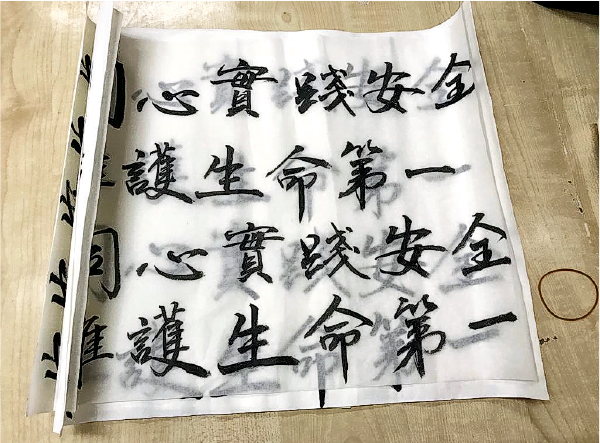 同心實踐安全
護生命第一
同心實踐安全
護生命第一